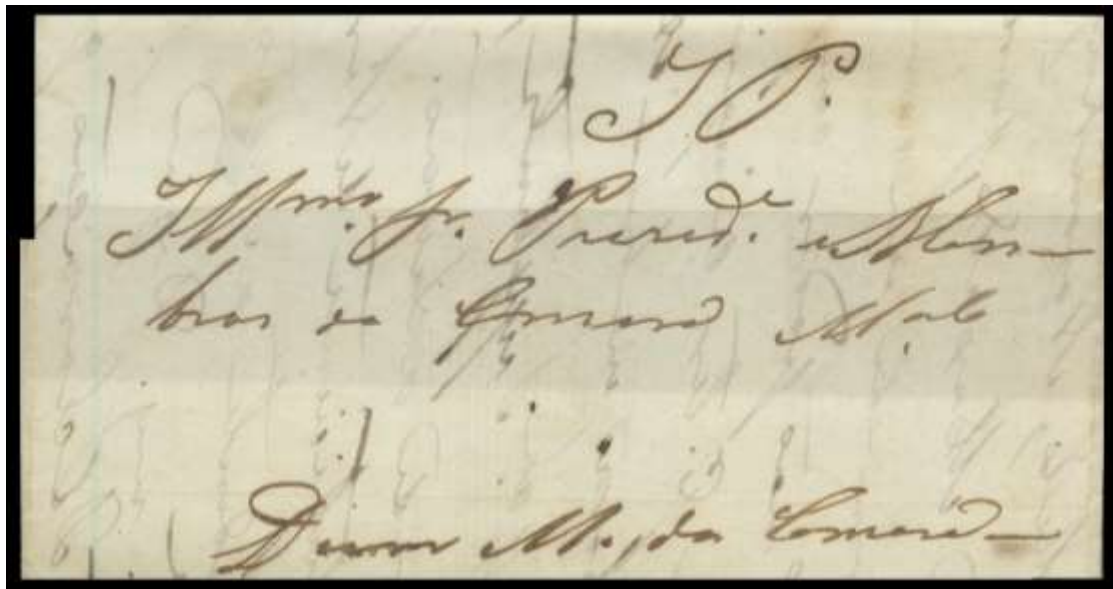 S P.
Illmo. Sr. Presid.e e Mem-
bros da Camara Mal
da Camara